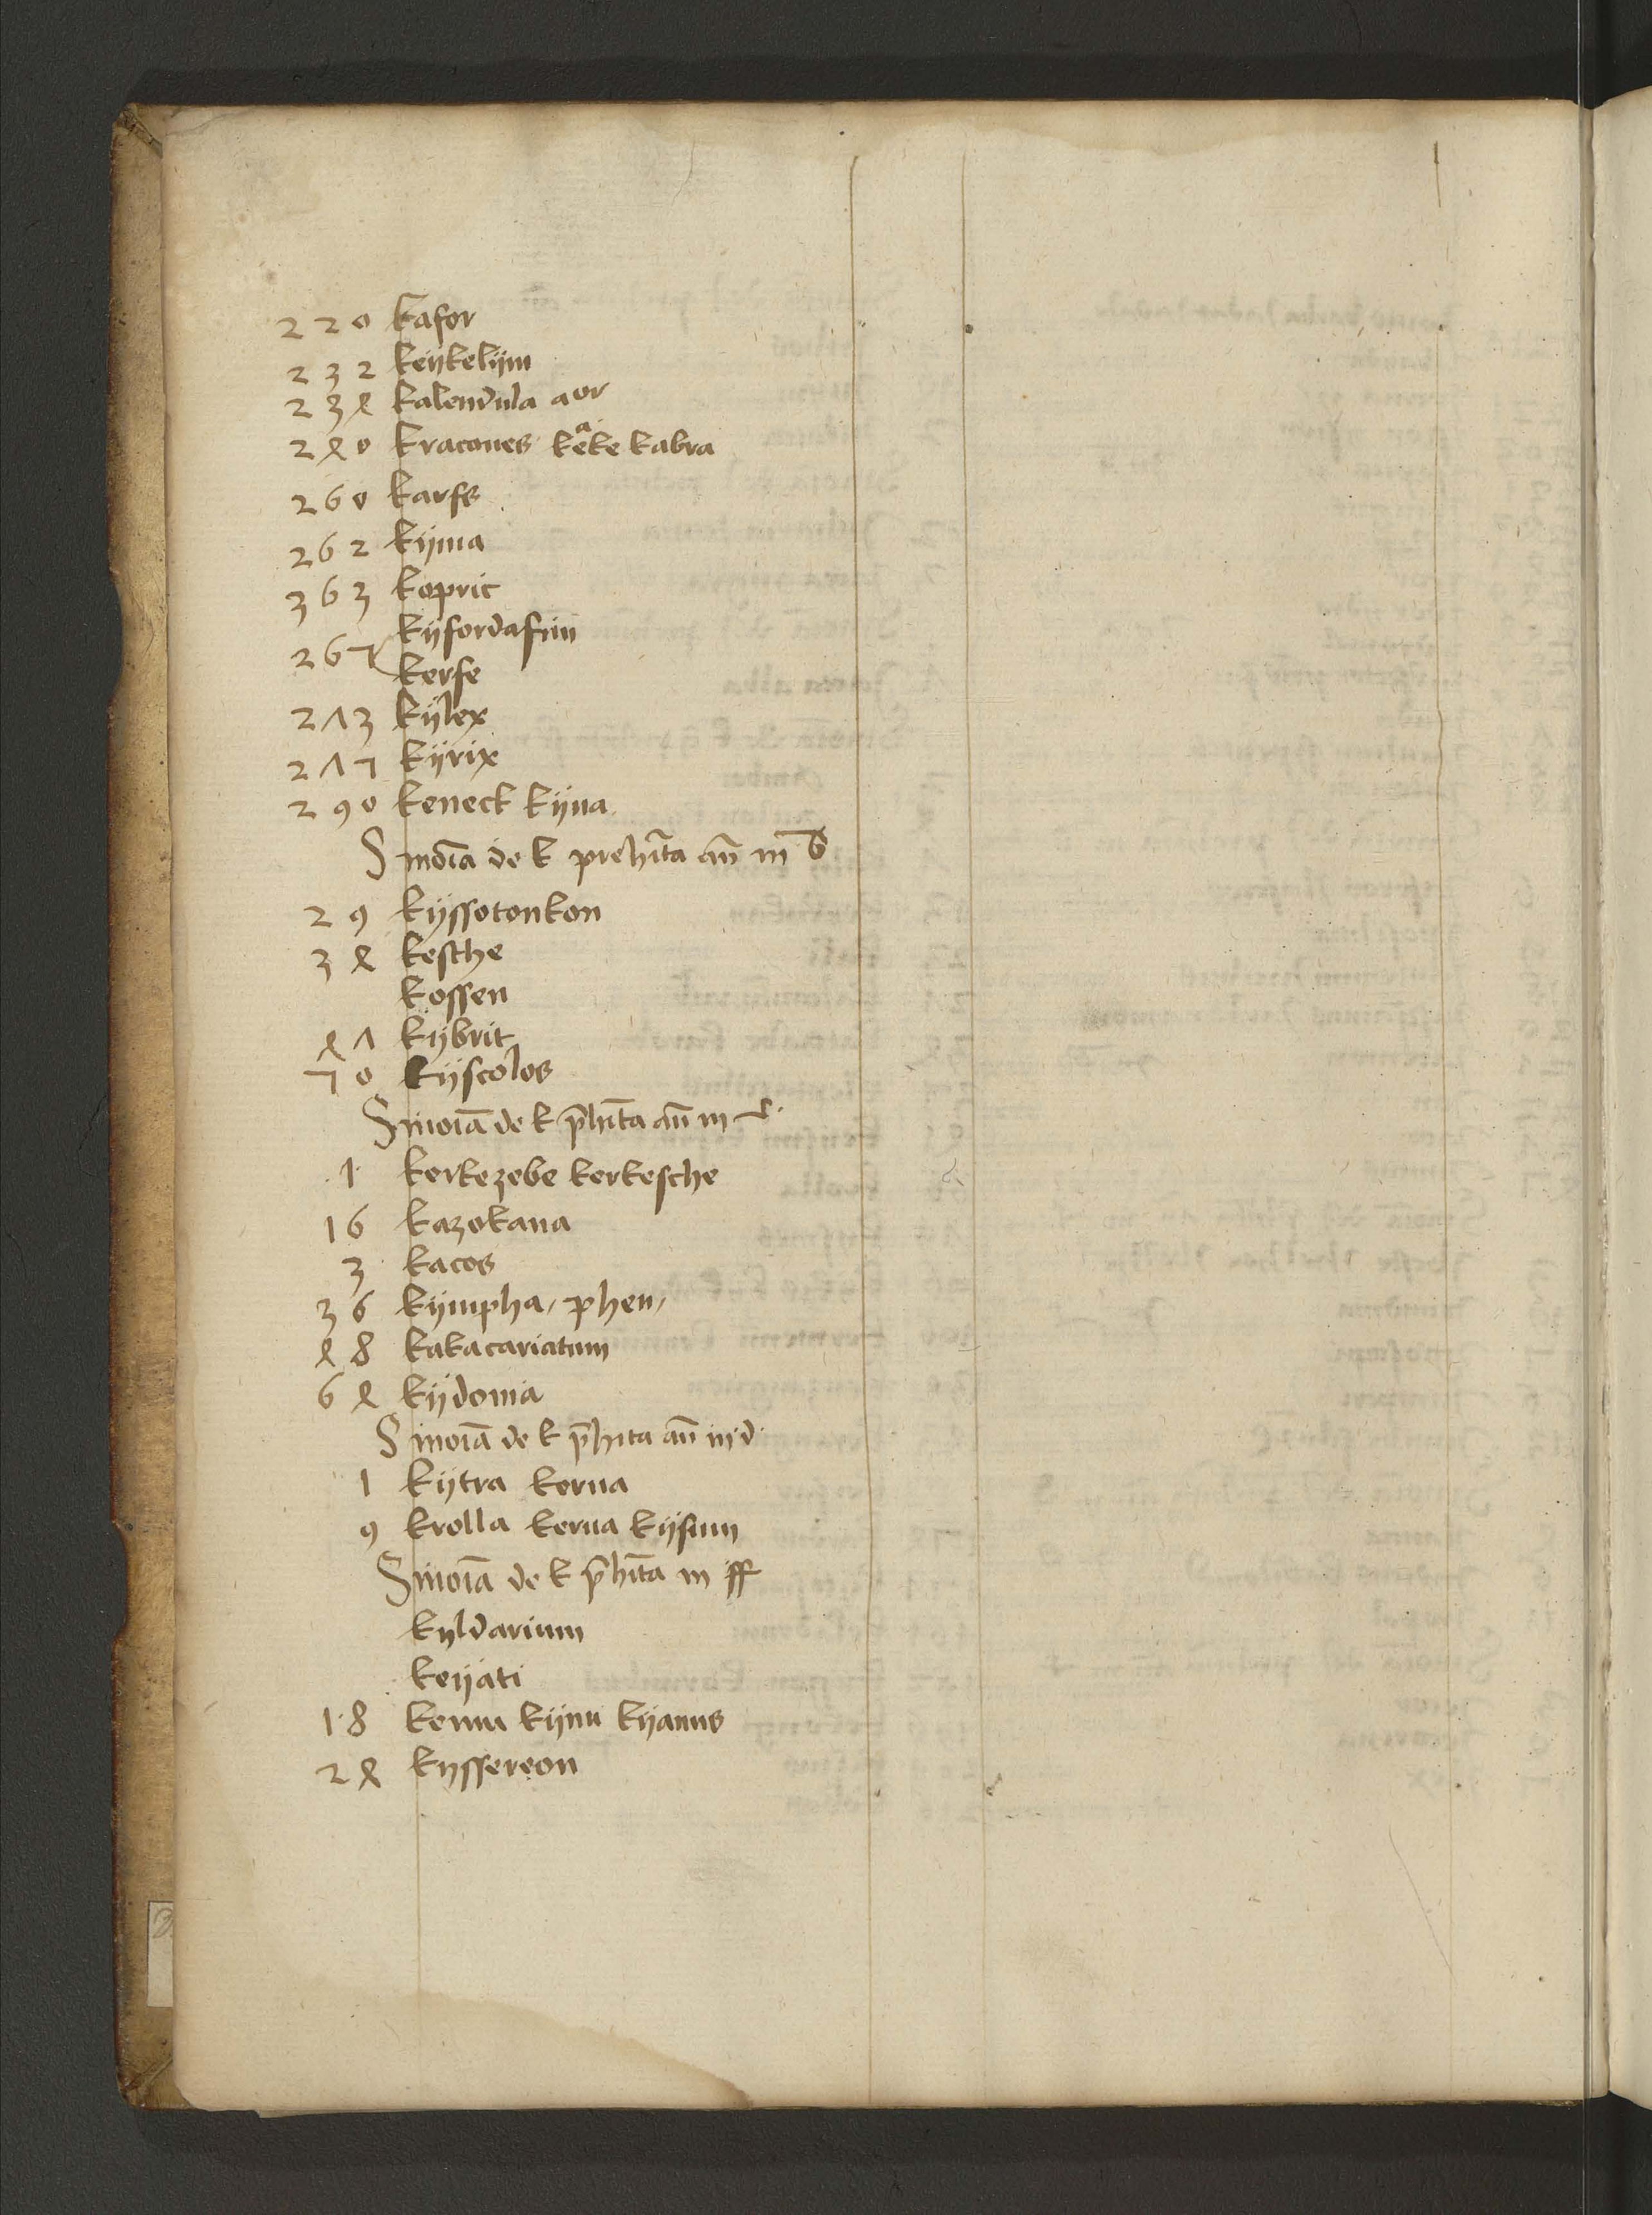 220 kafor
232 keÿkelÿm
234 kalendula aor
240 kracones keᵃke kabra
260 karfs
262 kÿma
363 kopric
267 kÿfordafrin
kerse
273 kÿlex
277 kÿrix
290 keneck kÿna
Sinoĩa de k prehĩta añ in b
29 kÿssotonkon
34 kesche
kossen
47 kÿbrit
70 kÿscolos
Sinoĩa de k p̄hĩta añ in c
1 kerkezebe kerkesche
16 kazokana
3 kacos
36 kÿmpha, phen,
48 kakacariatum
64 kÿdonia
Sinoĩa de k p̄hita añ in d
1 kÿtra kerua
9 krolla kerua kÿsim
Sinoĩa de k p̄hĩta in ff
kyldarium
keÿati
18 kemu kÿnu kÿamus
24 kyssereon